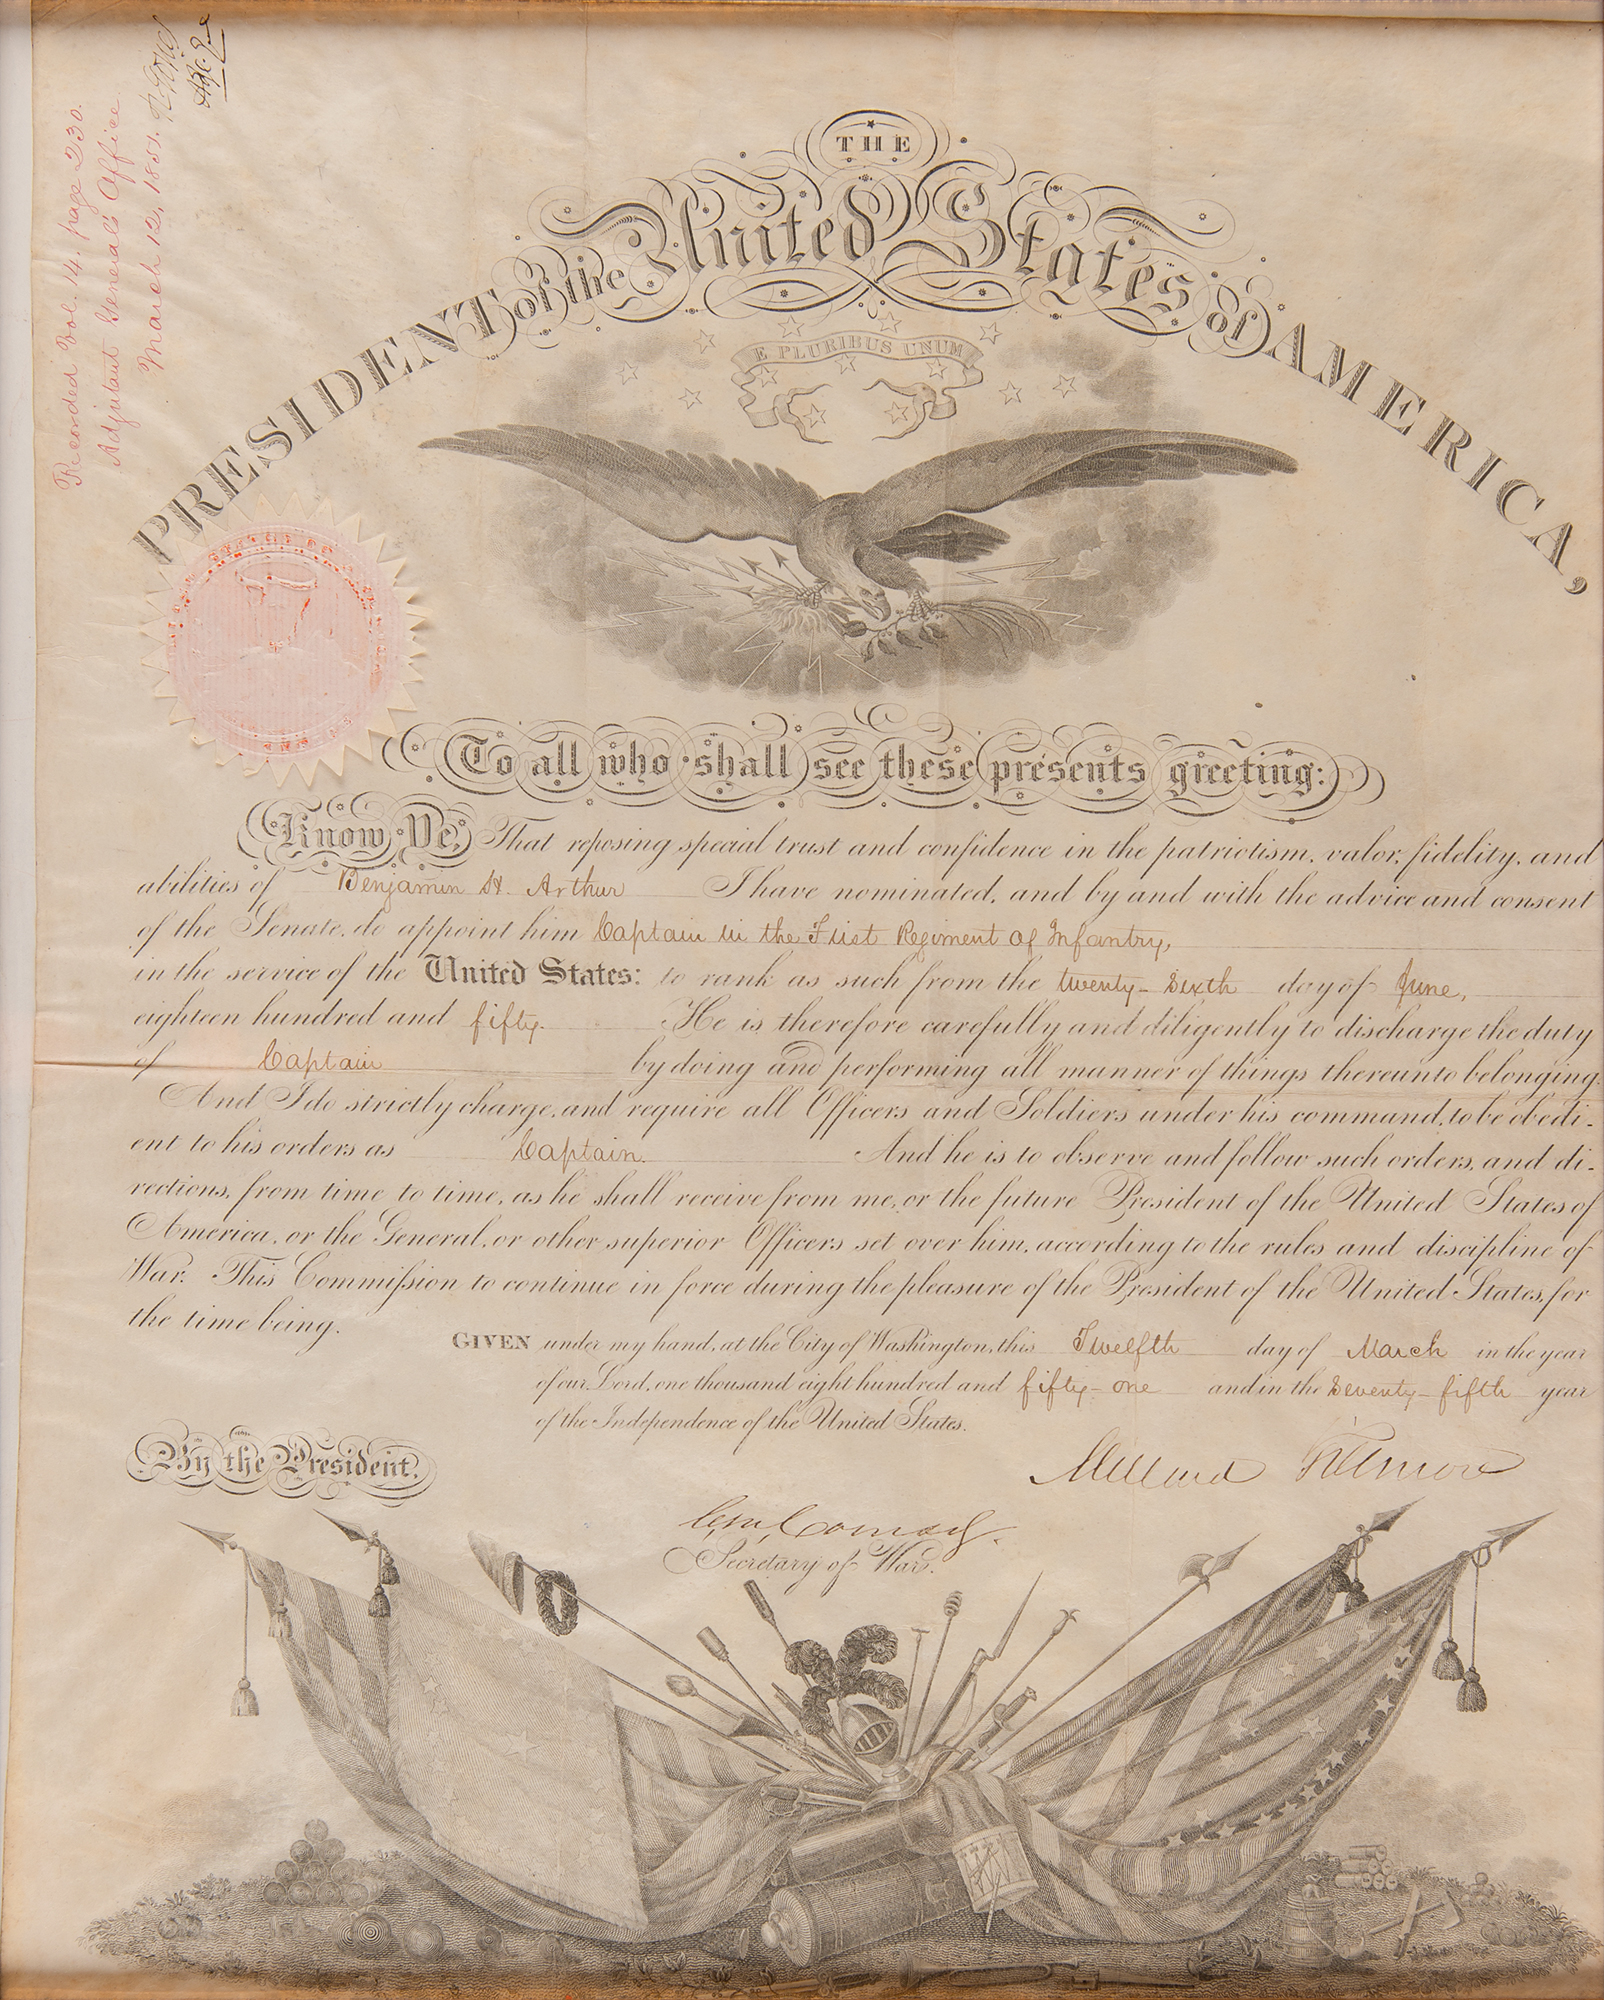 Recorded Vol. 14. page 230.
Adjutant General's Office
March 12, 1851.
THE
PRESIDENT of the United States of AMERICA,
E PLURIBUS UNUM
To all who shall see these presents greeting:
Know Ye, That reposing special trust and confidence in the patriotism, valor, fidelity, and
abilities of Benjamin H. Arthur I have nominated, and by and with the advice and consent
of the Senate, do appoint him Captain in the First Regiment of Infantry,
in the service of the United States: to rank as such from the twenty-sixth day of June,
eighteen hundred and fifty. He is therefore carefully and diligently to discharge the duty
of Captain by doing and performing all manner of things thereunto belonging.
And I do strictly charge, and require all Officers and Soldiers under his command, to be obedi-
ent to his orders as Captain. And he is to observe and follow such orders, and di-
rections, from time to time, as he shall receive from me, or the future President of the United States of
America, or the General, or other superior Officers set over him, according to the rules and discipline of
War. This Commission to continue in force during the pleasure of the President of the United States, for
the time being.
GIVEN under my hand, at the City of Washington, this Twelfth day of March in the year
of our Lord, one thousand eight hundred and fifty-one and in the seventy-fifth year
of the Independence of the United States.
By the President.
Millard Fillmore
C. M. Conrad.
Secretary of War.